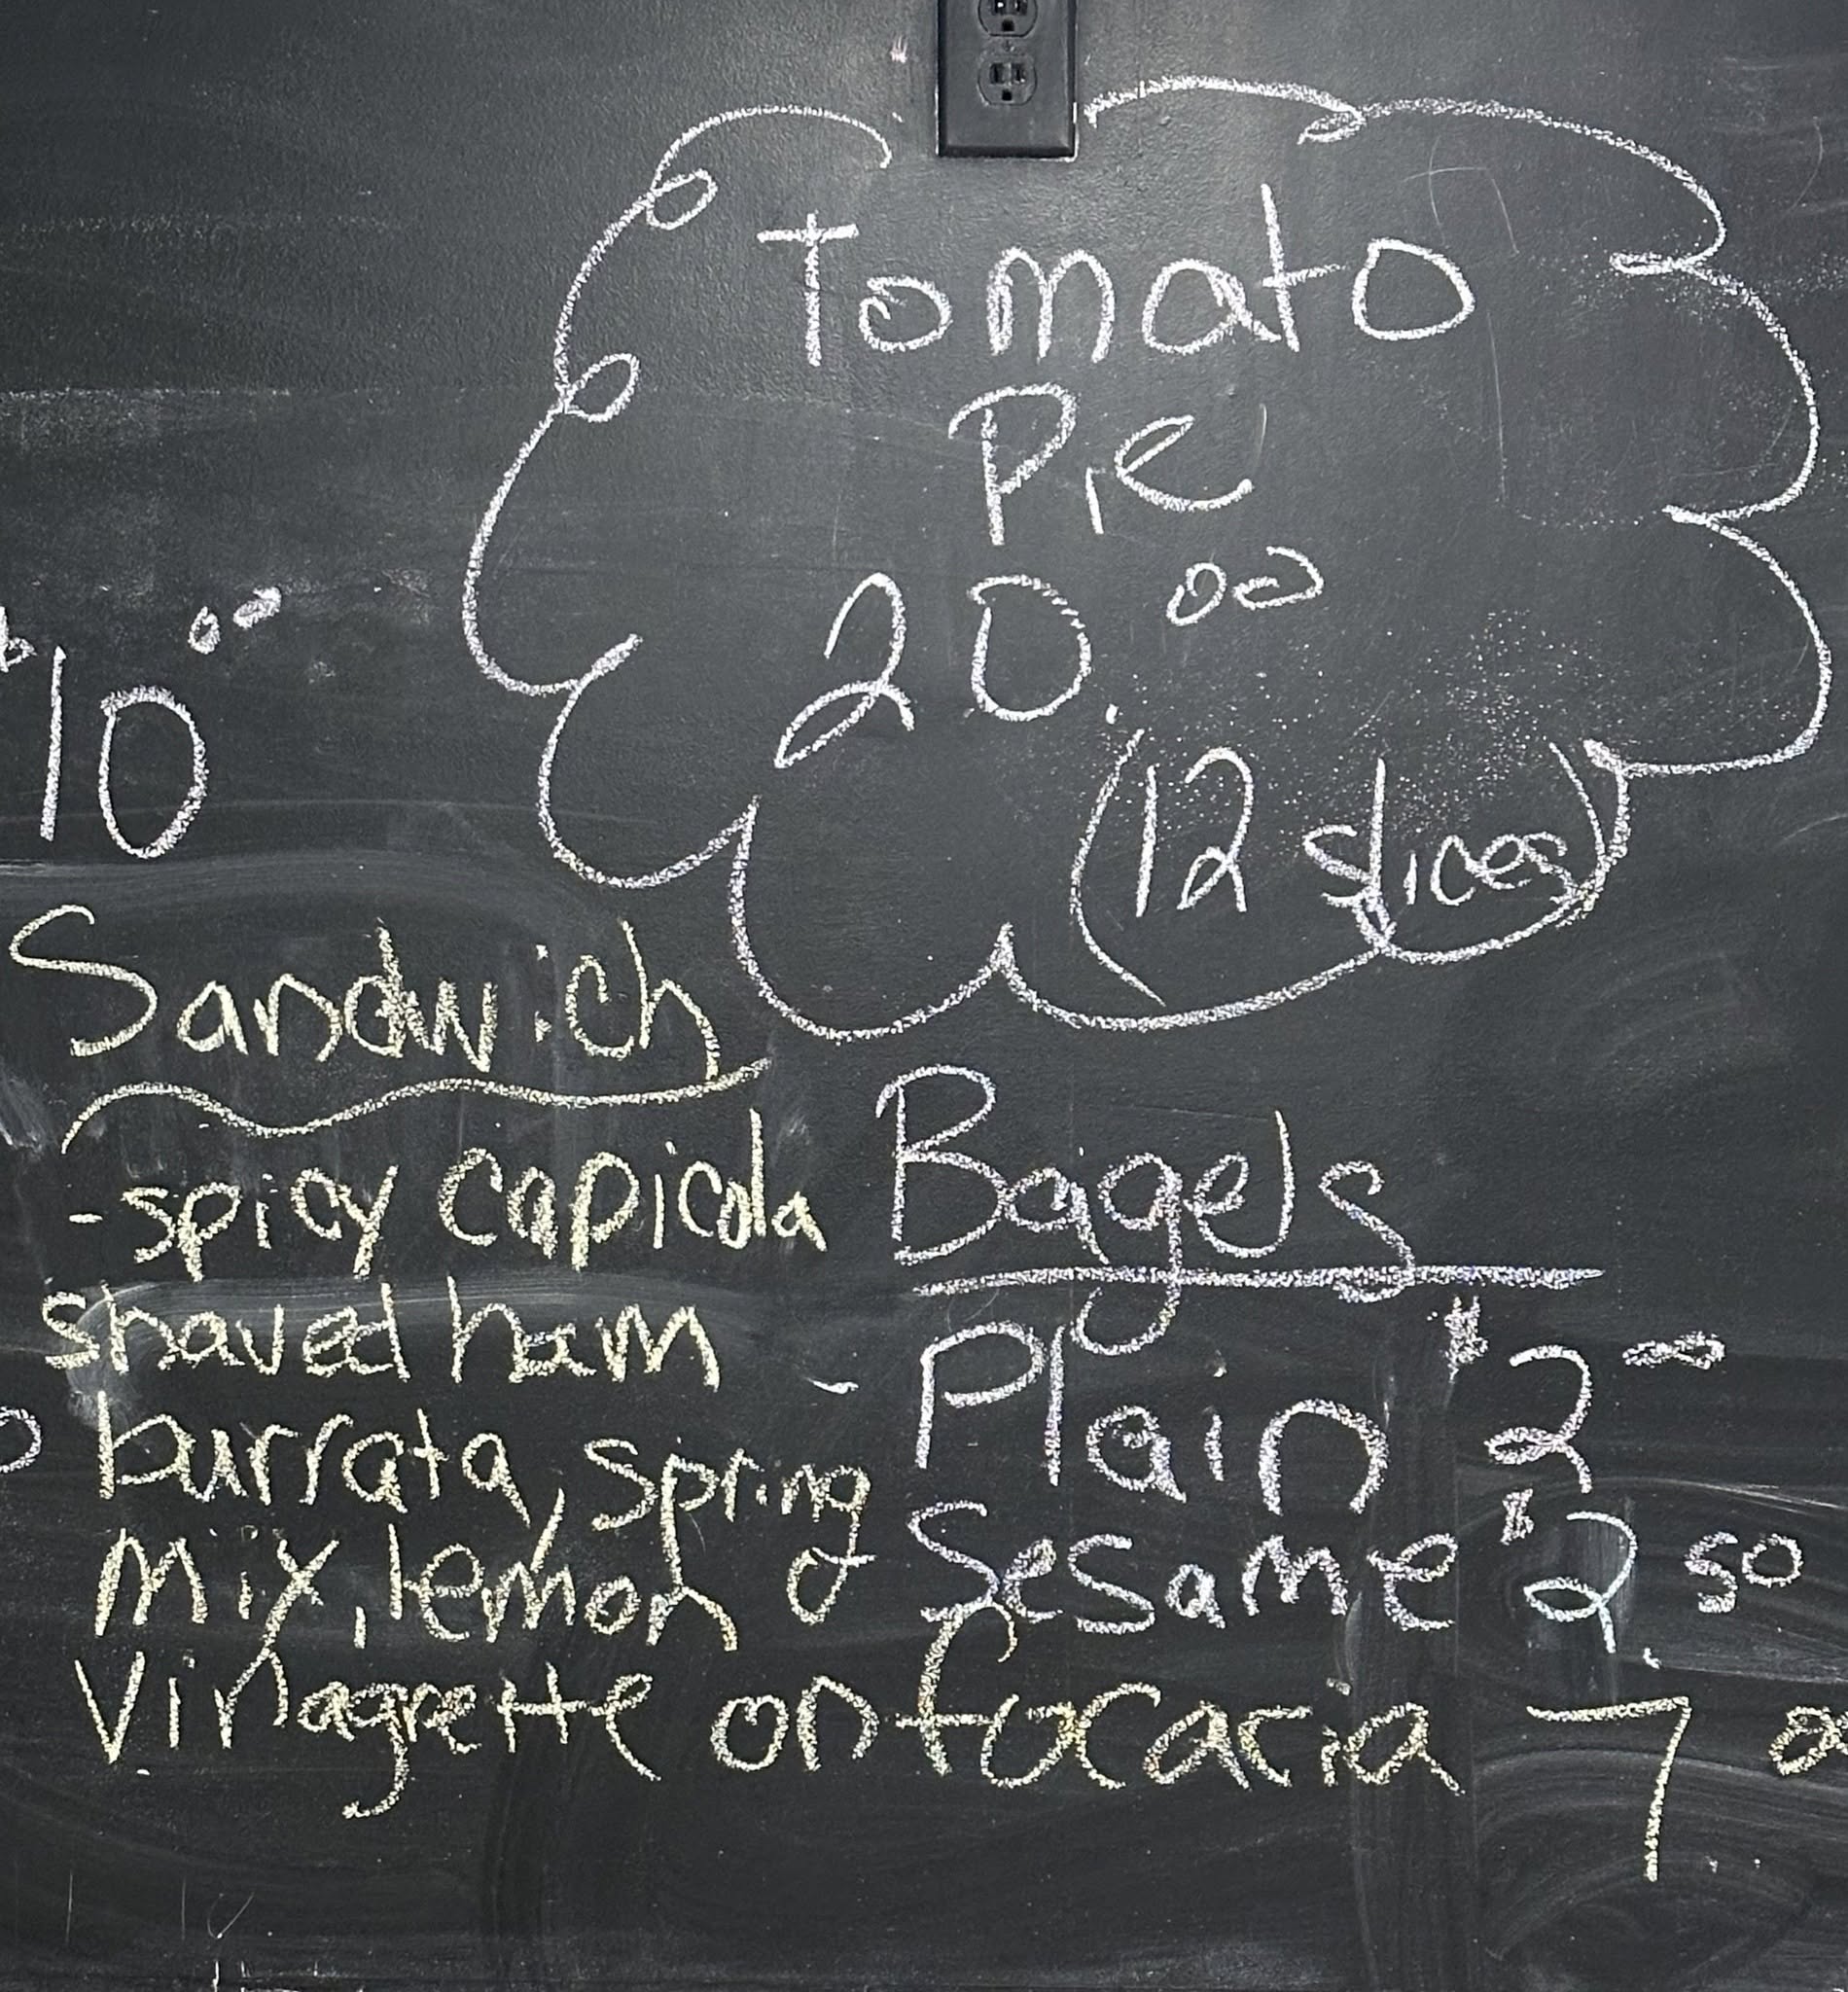 Tomato
Pie
20.00
(12 slices)
$10 00
Sandwich
- spicy capicola
shaved ham
burrata, spring
mix, lemon
Vinagrette on focacia 7.
Bagels
- Plain $2 00
Sesame $2.50